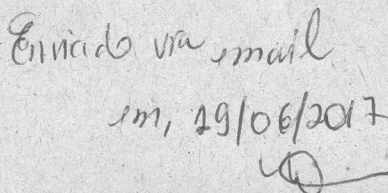 Enviado via email
em, 19/06/2017